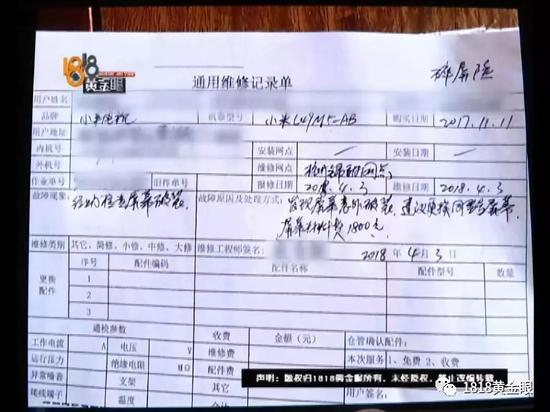 1818
黄金眼
碎屏险
通用维修记录单
用户姓名
品牌 小米电视 机器型号 小米L49M5-AB 购买日期 2017.11.11
用户地址
内机号 安装网点 安装日期
外机号 维修网点
作业单号 旧件单号 报修日期 2018.4.3 维修日期 2018.4.3
故障现象: 故障原因及处理方式: 发现屏幕意外破裂. 建议更换同型号屏幕.
检查屏幕破裂. 屏幕材料费1800元
维修类别 其它、简修、小修、中修、大修 维修工程师签名: 2018 年 4 月 3 日
更换配件 序号 配件编码 配件名称 配件型号 数量
1
2
3
通检参数 收费 金额(元) 仓管确认配件:
工作电流 A 电压 V 维修费 本次服务 1、免费 2、收费
运行压力 绝缘电阻 MΩ 配件费
异常噪音 支架 其它
接线端子 温度 用户签名:
声明:版权归1818黄金眼所有,未经授权,
1818黄金眼